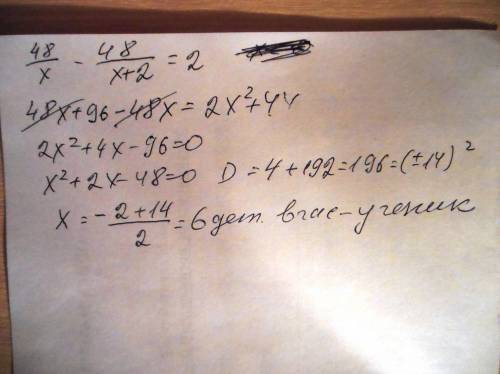 48/x - 48/(x+2) = 2
48x+96-48x = 2x²+4x
2x²+4x-96=0
x²+2x-48=0 D=4+192=196=(±14)²
x = (-2+14)/2 = 6 дет. в час - ученик